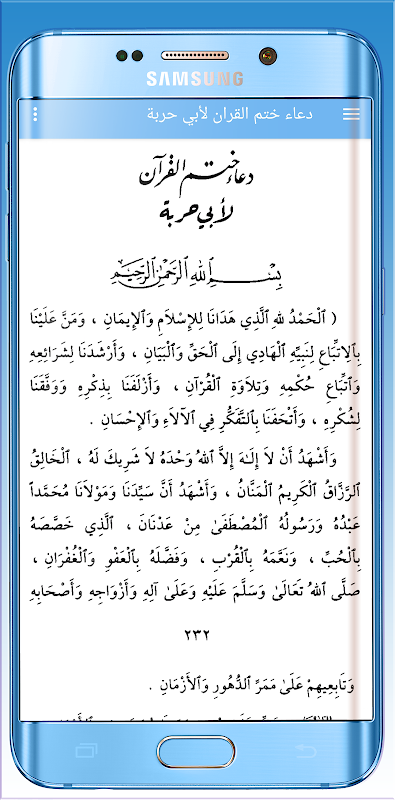 SAMSUNG
دعاء ختم القران لأبي حربة
دعاء ختم القرآن
لأبي حربة
بِسْمِ اللهِ الرَّحْمٰنِ الرَّحِيمِ
( الْحَمْدُ للهِ الَّذِي هَدَانَا لِلإِسْلاَمِ وَالإِيمَانِ ، وَمَنَّ عَلَيْنَا
بِالِاتِّبَاعِ لِنَبِيِّهِ الْهَادِي إِلَى الْحَقِّ وَالْبَيَانِ ، وَأَرْشَدَنَا لِشَرَائِعِهِ
وَاتِّبَاعِ حُكْمِهِ وَتِلاَوَةِ الْقُرْآنِ ، وَأَزْلَفَنَا بِذِكْرِهِ وَوَفَّقَنَا
لِشُكْرِهِ ، وَأَتْحَفَنَا بِالتَّفَكُّرِ فِي الآلاَءِ وَالإِحْسَانِ .
وَأَشْهَدُ أَنْ لاَ إِلٰهَ إِلاَّ اللهُ وَحْدَهُ لاَ شَرِيكَ لَهُ ، الْخَالِقُ
الرَّزَّاقُ الْكَرِيمُ الْمَنَّانُ ، وَأَشْهَدُ أَنَّ سَيِّدَنَا وَمَوْلاَنَا مُحَمَّداً
عَبْدُهُ وَرَسُولُهُ الْمُصْطَفَىٰ مِنْ عَدْنَانَ ، الَّذِي خَصَّصَهُ
بِالْحُبِّ ، وَنَعَّمَهُ بِالْقُرْبِ ، وَفَضَّلَهُ بِالْعَفْوِ وَالْغُفْرَانِ ،
صَلَّى اللهُ تَعَالَىٰ وَسَلَّمَ عَلَيْهِ وَعَلَىٰ آلِهِ وَأَزْوَاجِهِ وَأَصْحَابِهِ
٢٣٢
وَتَابِعِيهِمْ عَلَىٰ مَمَرِّ الدُّهُورِ وَالأَزْمَانِ .